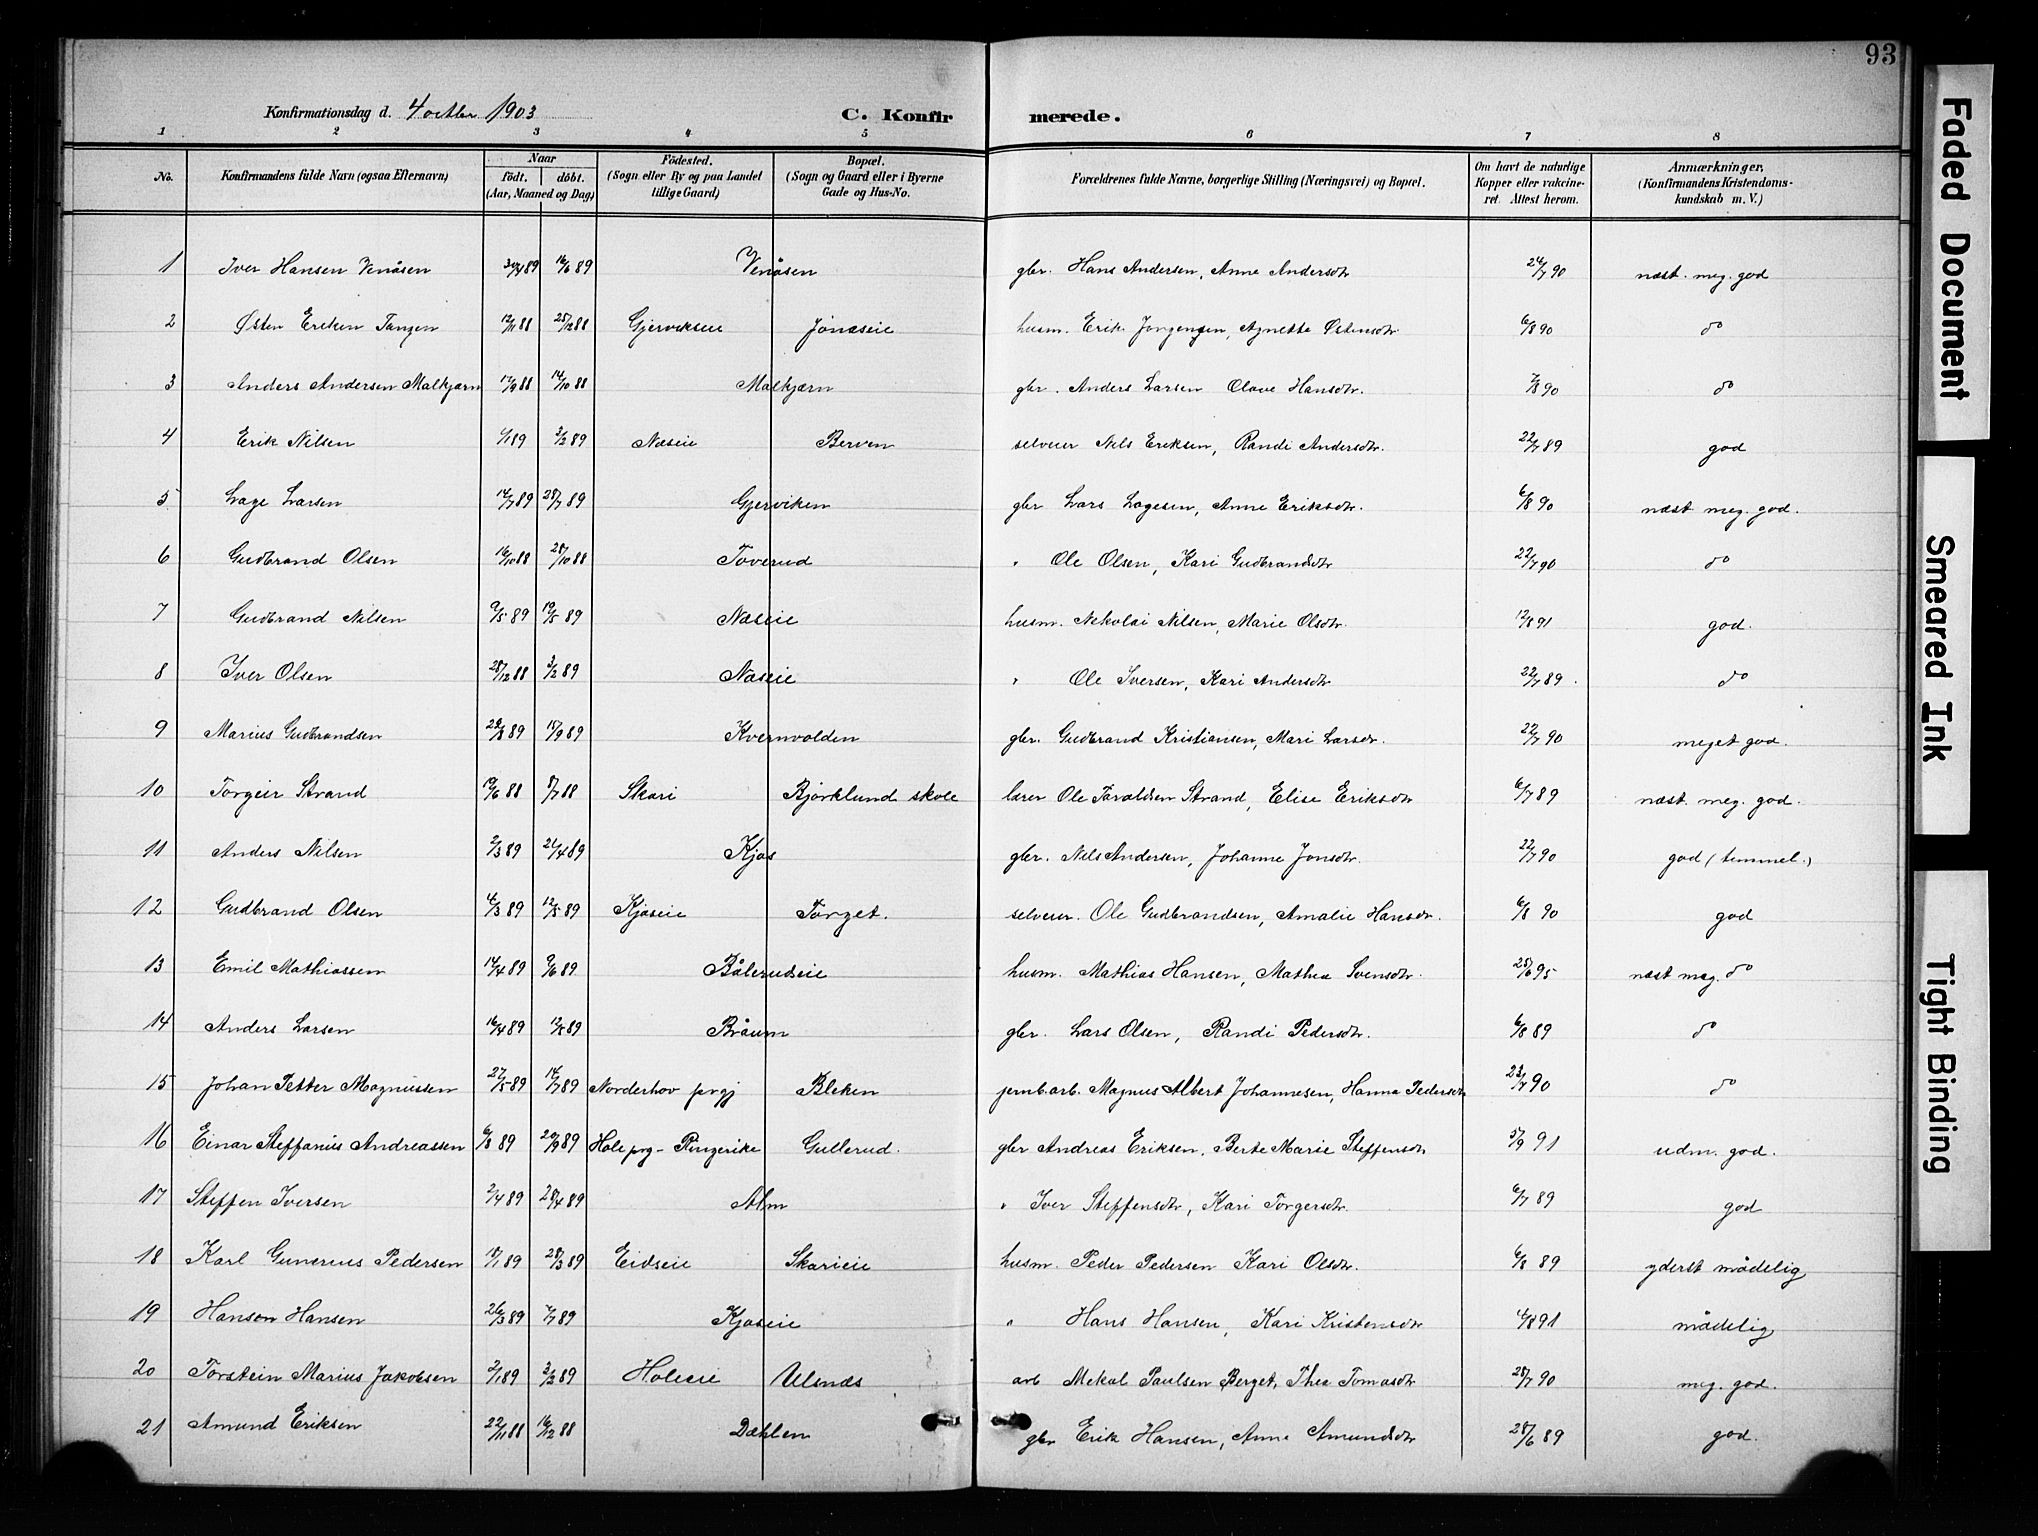 93
Konfirmationsdag d. 4 octbr 1903
C. Konfirmerede.
1 2 3 4 5 6 7 8
No. Konfirmandens fulde Navn (ogsaa Efternavn) Naar født. døbt. (Aar, Maaned og Dag) Födested. (Sogn eller By og paa Landet tillige Gaard) Bopæl. (Sogn og Gaard eller i Byerne Gade og Hus-No. Forældrenes fulde Navne, borgerlige Stilling (Næringsvei) og Bopæl. Om havt de naturlige Kopper eller vakcineret. Attest herom. Anmærkninger, (Konfirmandens Kristendomskundskab m. V.)
1 Iver Hansen Venåsen 30/4 89 16/6 89 Venåsen gbr. Hans Andersen, Anne Andersdtr 24/7 90 næst. meg. god
2 Østen Eriksen Tangen 12/11 88 25/12 88 Gjervikseie Jönaseie husm. Erik Jörgensen, Agnette Östensdtr 6/8 90 do
3 Anders Andersen Malkjærn 17/9 88 14/10 88 Malkjærn gbr. Anders Larsen Olave Hansdtr. 7/8 90 do
4 Erik Nilsen 1/1 89 3/2 89 Næseie Berven selveier Nils Eriksen, Randi Andersdtr. 22/7 89 god
5 Lage Larsen 14/7 89 28/7 89 Gjerviken gbr Lars Lagesen, Anne Eriksdtr. 6/8 90 næst meg. god.
6 Gudbrand Olsen 16/10 88 28/10 88 Toverud " Ole Olsen, Kari Gudbrandsdtr 22/7 90 do
7 Gudbrand Nilsen 9/5 89 19/5 89 Næseie husm. Nikolai Nilsen, Marie Olsdtr. 12/8 91 god.
8 Iver Olsen 28/12 88 3/2 89 Næseie " Ole Iversen, Kari Andersdtr 22/7 89. do
9 Marius Gudbrandsen 29/8 89 15/9 89 Kvernvolden gbr. Gudbrand Kristiansen, Mari Larsdr. 22/7 90 meget god.
10 Torgeir Strand 19/6 88 8/7 88 Skari Bjørklund skole lærer Ole Taraldsen Strand, Elise Eriksdtr 6/7 89 næst. meg. god.
11 Anders Nilsen 2/3 89 21/4 89 Kjøs gbr. Nils Andersen, Johanne Jonsdtr. 22/7 90 god (temmel.)
12 Gudbrand Olsen 4/3 89 12/5 89 Kjøseie Torget. selveier. Ole Gudbrandsen, Amalie Hansdr. 6/8 90 god
13 Emil Mathiassen 14/4 89 9/6 89. Bålerudseie husm. Mathias Hansen, Mathea Svensdtr. 25/6 95 næst meg. do
14 Anders Larsen 16/4 89 12/5 89 Bråum gbr. Lars Olsen, Randi Pedersdtr. 6/8 89 do
15 Johan Petter Magnussen 27/5 89 14/7 89 Norderhov prgj Bleken jernb.arb. Magnus Albert Johannesen, Hanna Pedersdtr 22/7 90 do
16 Einar Steffanius Andreassen 6/8 89 29/9 89 Hole prg- Ringerike Gullerud. gbr Andreas Eriksen, Berte Marie Steffensdtr 5/9 91 udm. god.
17 Steffen Iversen 2/4 89 28/4 89 Alm " Iver Steffensdtr, Kari Torgersdtr. 6/7 89 god
18 Karl Gunerius Pedersen 18/1 89 28/3 89 Eidseie Skarieie husm. Peder Pedersen Kari Olsdtr. 6/8 89 yderst mådelig
19 Hanson Hansen 26/3 89 7/7 89 Kjøseie " Hans Hansen, Kari Kristensdtr 4/8 91 mådelig
20 Torstein Marius Jakobsen 2/1 89 3/2 89 Holeeie Ulsnæs arb Mekal Paulsen Berget, Thea Tomasdtr 28/7 90 meg. god.
21 Amund Eriksen 22/11 88 16/12 88 Dæhlen gbr Erik Hansen, Anne Amundsdtr 28/6 89 god.
Faded Document
Smeared Ink
Tight Binding